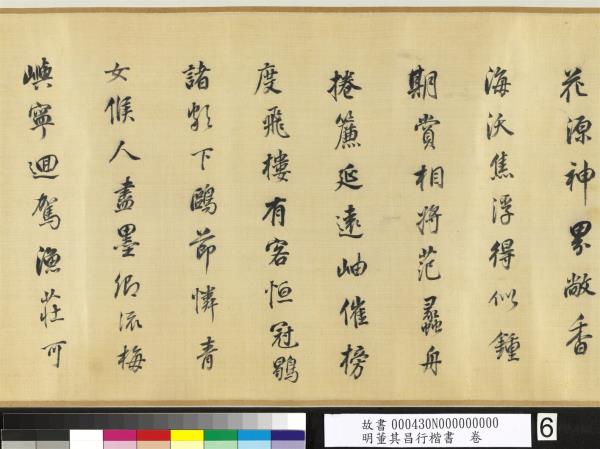 花源神界敞香
海沃焦浮得似鍾
期賞相將范蠡舟
捲簾延遠岫催榜
度飛樓有客恒冠鶡
諸下鷗節憐青
女候人盡墨卿流梅
嶼寧迴駕漁莊可
故書 000430N000000000
明董其昌行楷書 卷
6